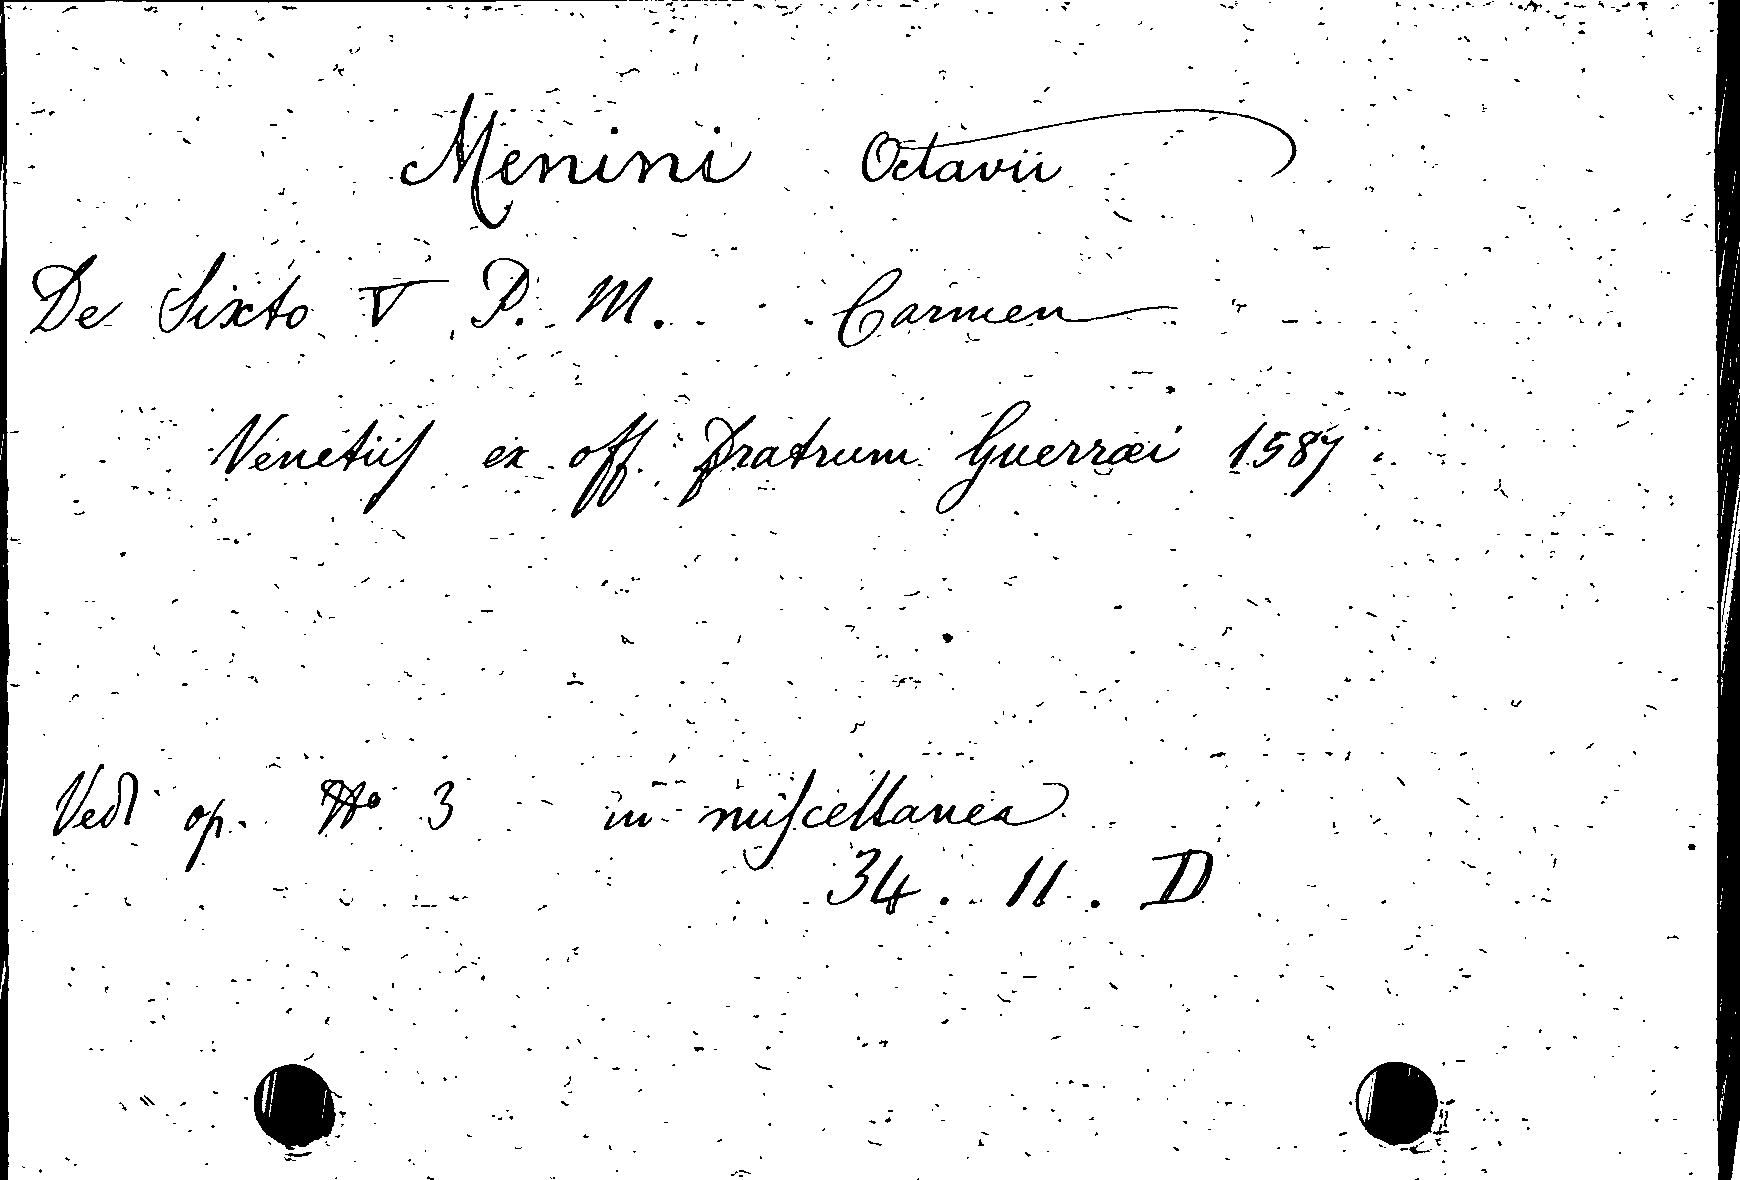 Menini Octavii
De Sixto V P. M. Carmen
Venetiis ex off. Fratrum Guerræi 1587
Vedi op. No 3 in miscellanea
34. 11. D